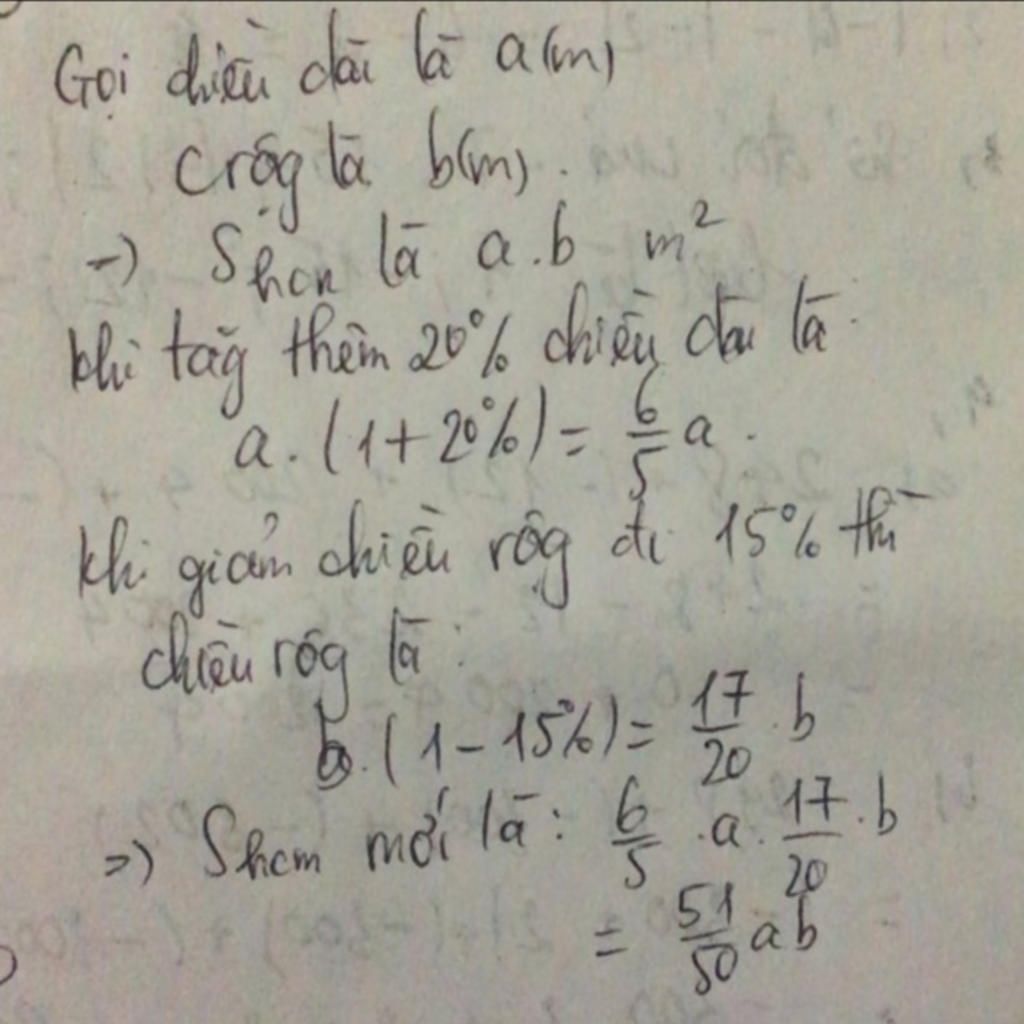 Gọi chiều dài là a(m)
crộg là b(m).
-) Shcn là a.b m²
khi tăg thêm 20% chiều dài là
a.(1+20%) = 6/5 a.
khi giảm chiều rộg đi 15% thì
chiều rộg là:
b.(1-15%) = 17/20 . b
=) Shcn mới là: 6/5 .a. 17/20 .b
= 51/50 ab